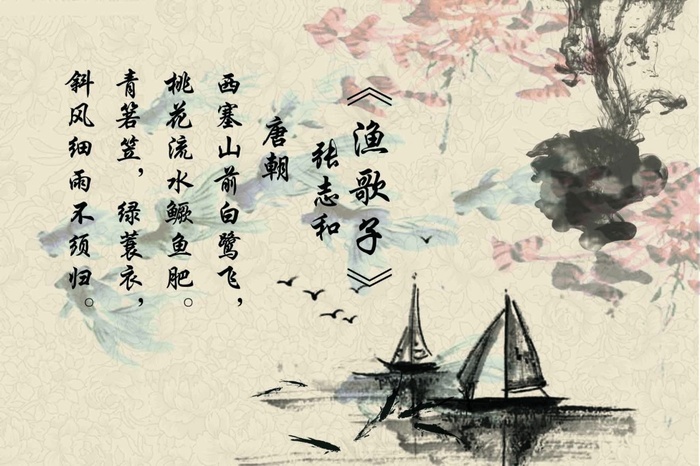 《渔歌子》
张志和
唐朝
西塞山前白鹭飞，
桃花流水鳜鱼肥。
青箬笠，绿蓑衣，
斜风细雨不须归。